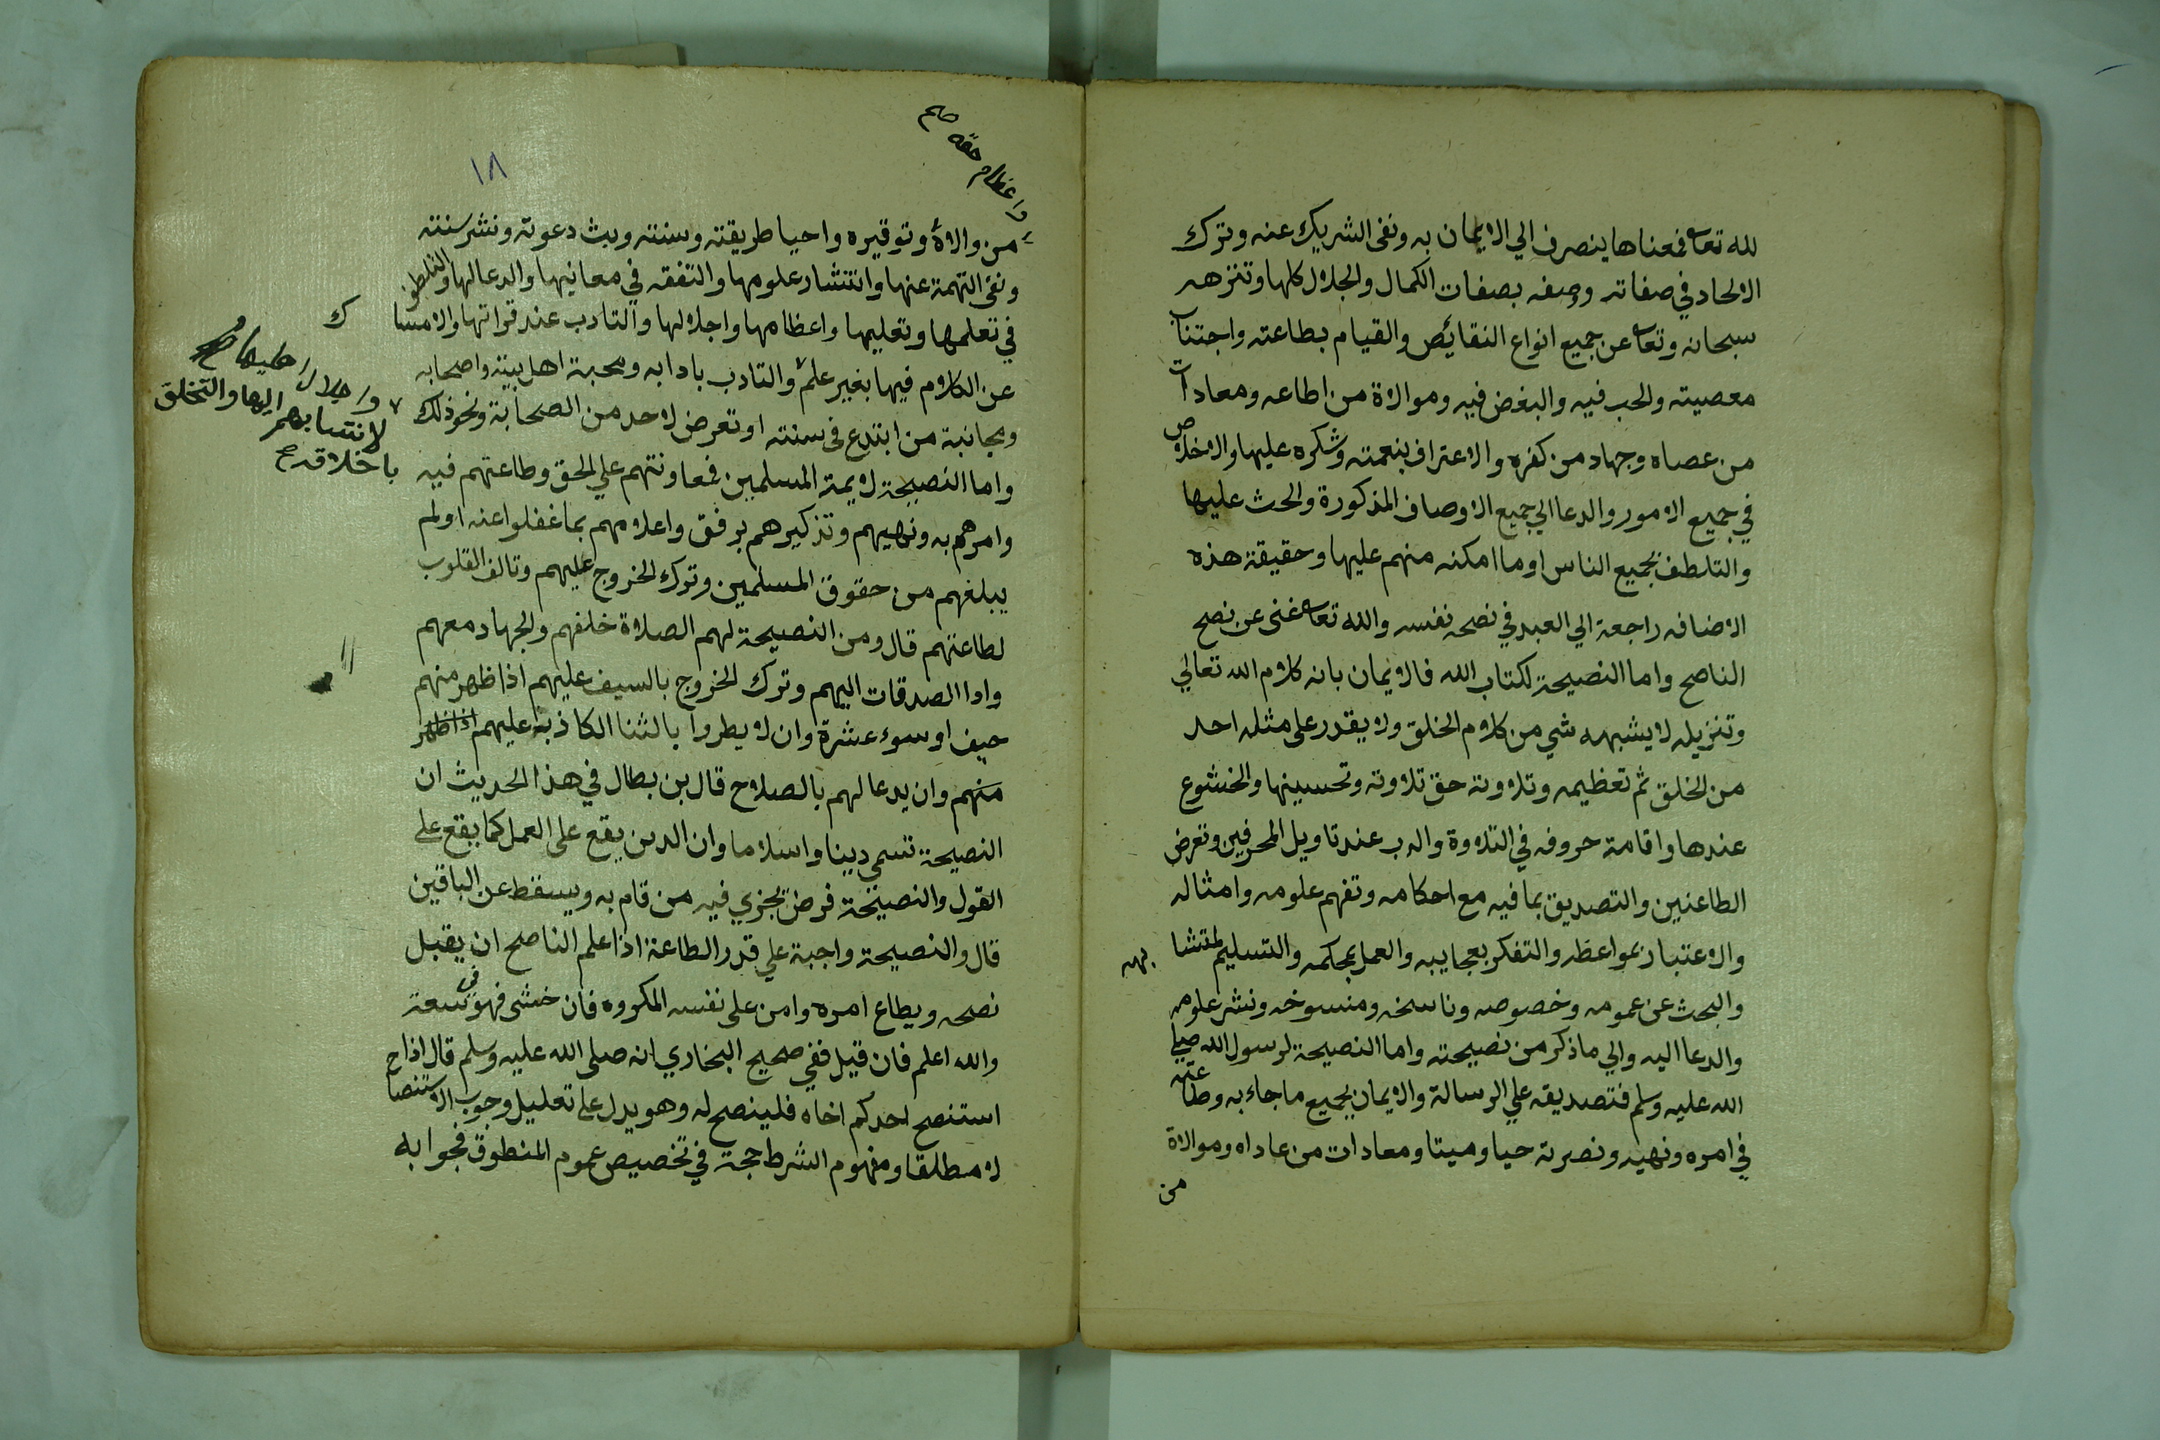 لله تعا فمعناها ينصرف الي الايمان به ونفى الشريك عنه وترك
الالحاد في صفاته وصفه بصفات الكمال والجلال كلها وتنزهه
سبحانه وتعا عن جميع انواع النقائص والقيام بطاعته واجتناب
معصيته والحب فيه والبغض فيه وموالاة من اطاعه ومعادات
من عصاه وجهاد من كفره والاعتراف بنعمته وشكره عليها والاخلاص
في جميع الامور والدعا الي جميع الاوصاف المذكورة والحث عليها
والتلطف بجميع الناس او ما امكنه منهم عليها وحقيقة هذه
الاضافه راجعة الي العبد في نصحه نفسه والله تعا غنى عن نصح
الناصح واما النصيحة لكتاب الله فالايمان بانه كلام الله تعالي
وتنزيله لا يشبهه شي من كلام الخلق ولا يقدر على مثله احد
من الخلق ثم تعظيمه وتلاوته حق تلاوته وتحسينها والخشوع
عندها واقامة حروفه في التلاوة والدب عند تاويل المحرفين وتعرض
الطاعنين والتصديق بما فيه مع احكامه وتفهم علومه وامثاله
والاعتبار بمواعظه والتفكر بعجايبه والعمل بمحكمه والتسليم لمتشا
بهه
والبحث عن عمومه وخصوصه وناسخه ومنسوخه ونشر علومه
والدعا اليه والي ما ذكر من نصيحته واما النصيحة لرسول الله صلي
الله عليه وسلم فتصديقه علي الرسالة والايمان بجميع ما جاء به وطاعته
في امره ونهيه ونصرته حيا وميتا ومعادات من عاداه وموالاة
من
١٨
واعظام حقه صح
من والاهٔ وتوقيره واحيا طريقته وسنته وبث دعوته ونشر سنته
ونفى التهمة عنها وانتشار علومها والتفقه في معانيها والدعا لها والتلطف
في تعلمها وتعليمها واعظامها واجلالها والتادب عند قراتها والامسا
ك
عن الكلام فيها بغير علم والتادب بادابه ومحبة اهل بيته واصحابه
واجلال اهليها صح
لانتسابهم اليها والتخلق
باخلاقه صح
ومجانبة من ابتدع فى سنته او تعرض لاحد من الصحابة ونحو ذلك
واما النصيحة لايمة المسلمين فمعاونتهم علي الحق وطاعتهم فيه
وامرهم به ونهيهم وتذكيرهم برفق واعلامهم بما غفلوا عنه او لم
يبلغهم من حقوق المسلمين وترك الخروج عليهم وتالف القلوب
لطاعتهم قال ومن النصيحة لهم الصلاة خلفهم والجهاد معهم
وادا الصدقات اليهم وترك الخروج بالسيف عليهم اذا ظهر منهم
حيف او سوء عشرة وان لا يطروا بالثنا الكاذب عليهم اذا ظهر
منهم وان يدعا لهم بالصلاح قال بن بطال في هذا الحديث ان
النصيحة تسمى دينا واسلاما وان الدين يقع على العمل كما يقع على
القول والنصيحة فرض يجزي فيه من قام به ويسقط عن الباقين
قال والنصيحة واجبة علي قدر الطاعة اذا علم الناصح ان يقبل
نصحه ويطاع امره وامن على نفسه المكروه فان خشى فهو في سعة
والله اعلم فان قيل ففي صحيح البخاري انه صلى الله عليه وسلم قال اذا
استنصح احدكم اخاه فلينصح له وهو يدل على تعليل وجوب الاستنصاح
لا مطلقا ومفهوم الشرط حجة في تخصيص عموم المنطوق فجوابه